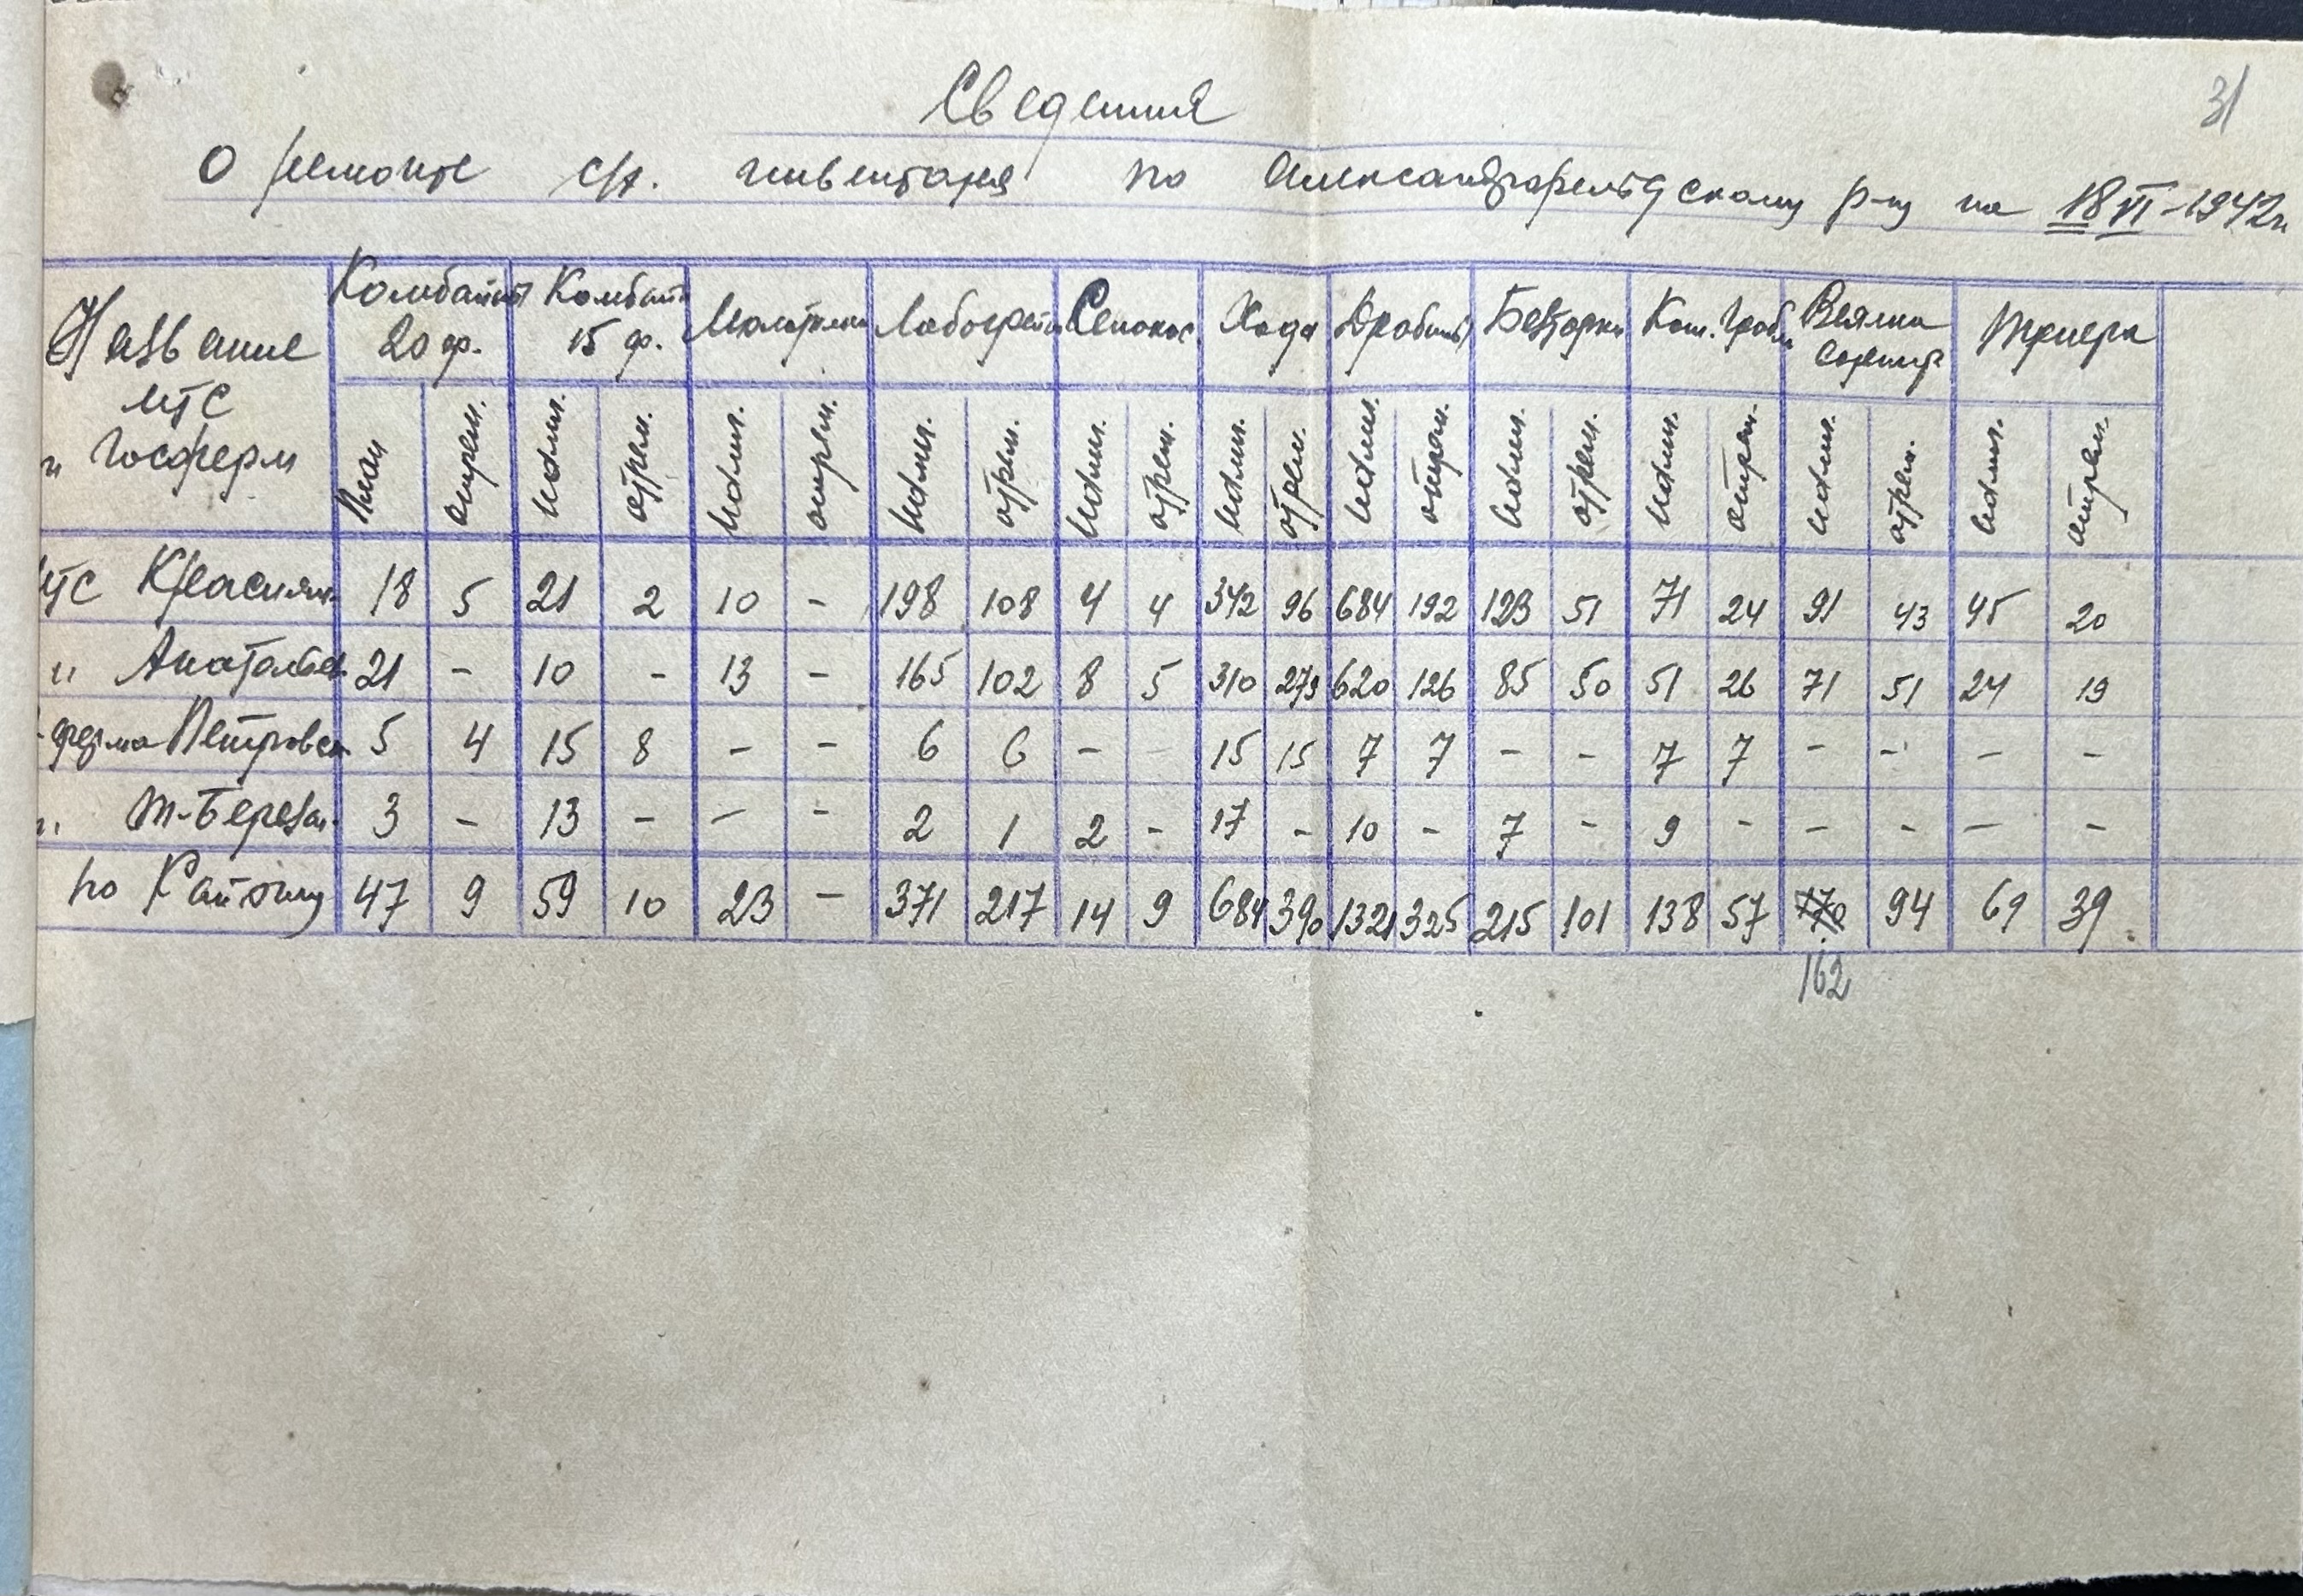 31
Сведения
О ремонте с/х. инвентаря по Александерфельдскому р-ну на 18 VI-1942 г.
Название МТС и Госферм | Комбайны 20 ф. | Комбайн 15 ф. | Молотилки | Лобогрейк | Сенокос. | Хода | Дробины | Безтарки | Кон. Грабли | Веялки сортир | Триера
План | отрем. | подлеж. | отрем. | подлеж. | отрем. | подлеж. | отрем. | подлеж. | отрем. | подлеж. | отрем. | подлеж. | отрем. | подлеж. | отрем. | подлеж. | отрем. | подлеж. | отрем. | подлеж. | отрем.
МТС Краснян. | 18 | 5 | 21 | 2 | 10 | - | 198 | 108 | 4 | 4 | 342 | 96 | 684 | 192 | 123 | 51 | 71 | 24 | 91 | 43 | 45 | 20
" Анатольев. | 21 | - | 10 | - | 13 | - | 165 | 102 | 8 | 5 | 310 | 279 | 620 | 126 | 85 | 50 | 51 | 26 | 71 | 51 | 24 | 19
ферма Петровск | 5 | 4 | 15 | 8 | - | - | 6 | 6 | - | - | 15 | 15 | 7 | 7 | - | - | 7 | 7 | - | - | - | -
" Т-Березан. | 3 | - | 13 | - | - | - | 2 | 1 | 2 | - | 17 | - | 10 | - | 7 | - | 9 | - | - | - | - | -
по Району | 47 | 9 | 59 | 10 | 23 | - | 371 | 217 | 14 | 9 | 684 | 390 | 1321 | 325 | 215 | 101 | 138 | 57 | 170 | 94 | 69 | 39
162